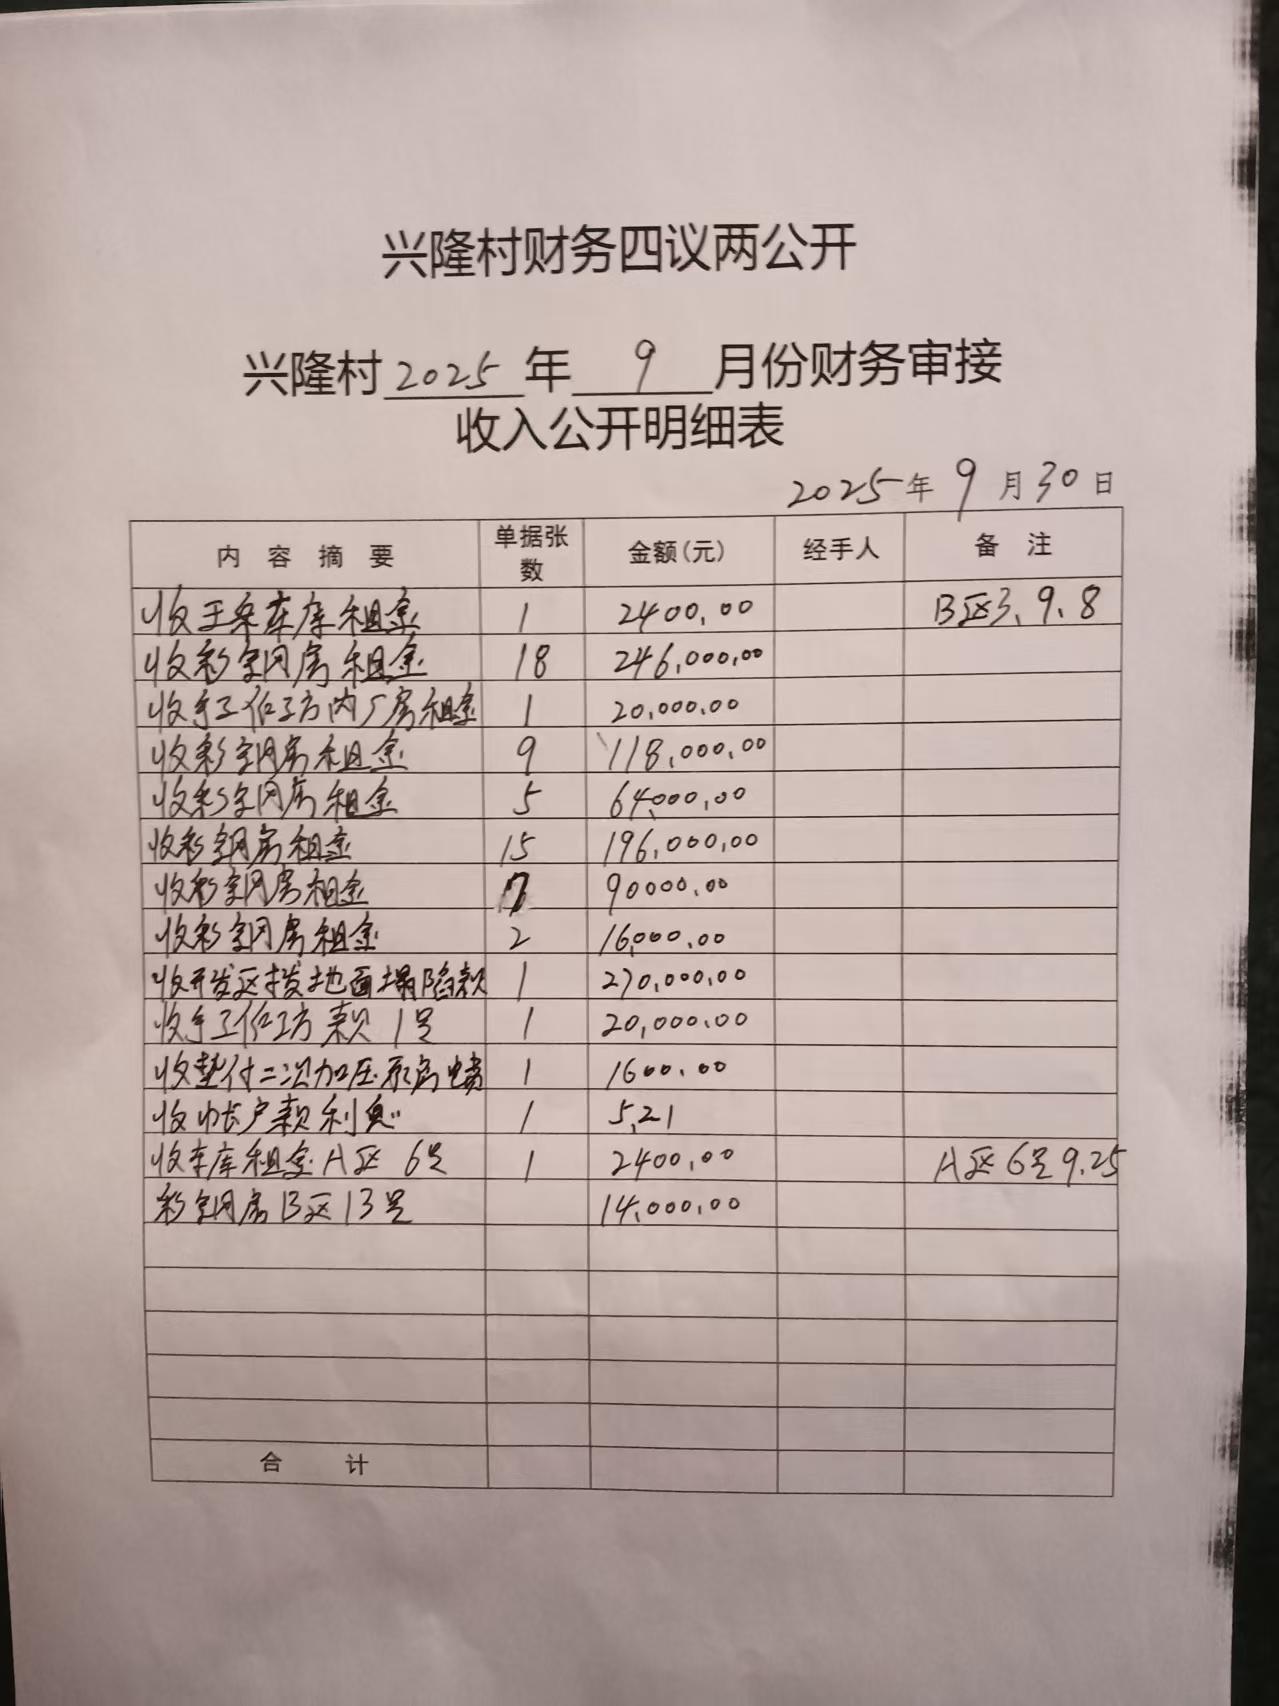 兴隆村财务四议两公开
兴隆村2025年9月份财务审接
收入公开明细表
2025年9月30日
内容摘要 单据张数 金额(元) 经手人 备注
收王车库租金 1 2400.00 B区3、9.8
收彩钢房租金 18 246,000.00
收手工作工方内厂房租金 1 20,000.00
收彩钢房租金 9 118,000.00
收彩钢房租金 5 64,000.00
收彩钢房租金 15 196,000.00
收彩钢房租金 7 90000.00
收彩钢房租金 2 16,000.00
收开发区拨地面塌陷款 1 270,000.00
收手工作工方款1号 1 20,000.00
收垫付二次加压泵房电费 1 1600.00
收帐户款利息 1 5,21
收车库租金A区6号 1 2400.00 A区6号9.25
彩钢房B区13号 14,000.00
合计